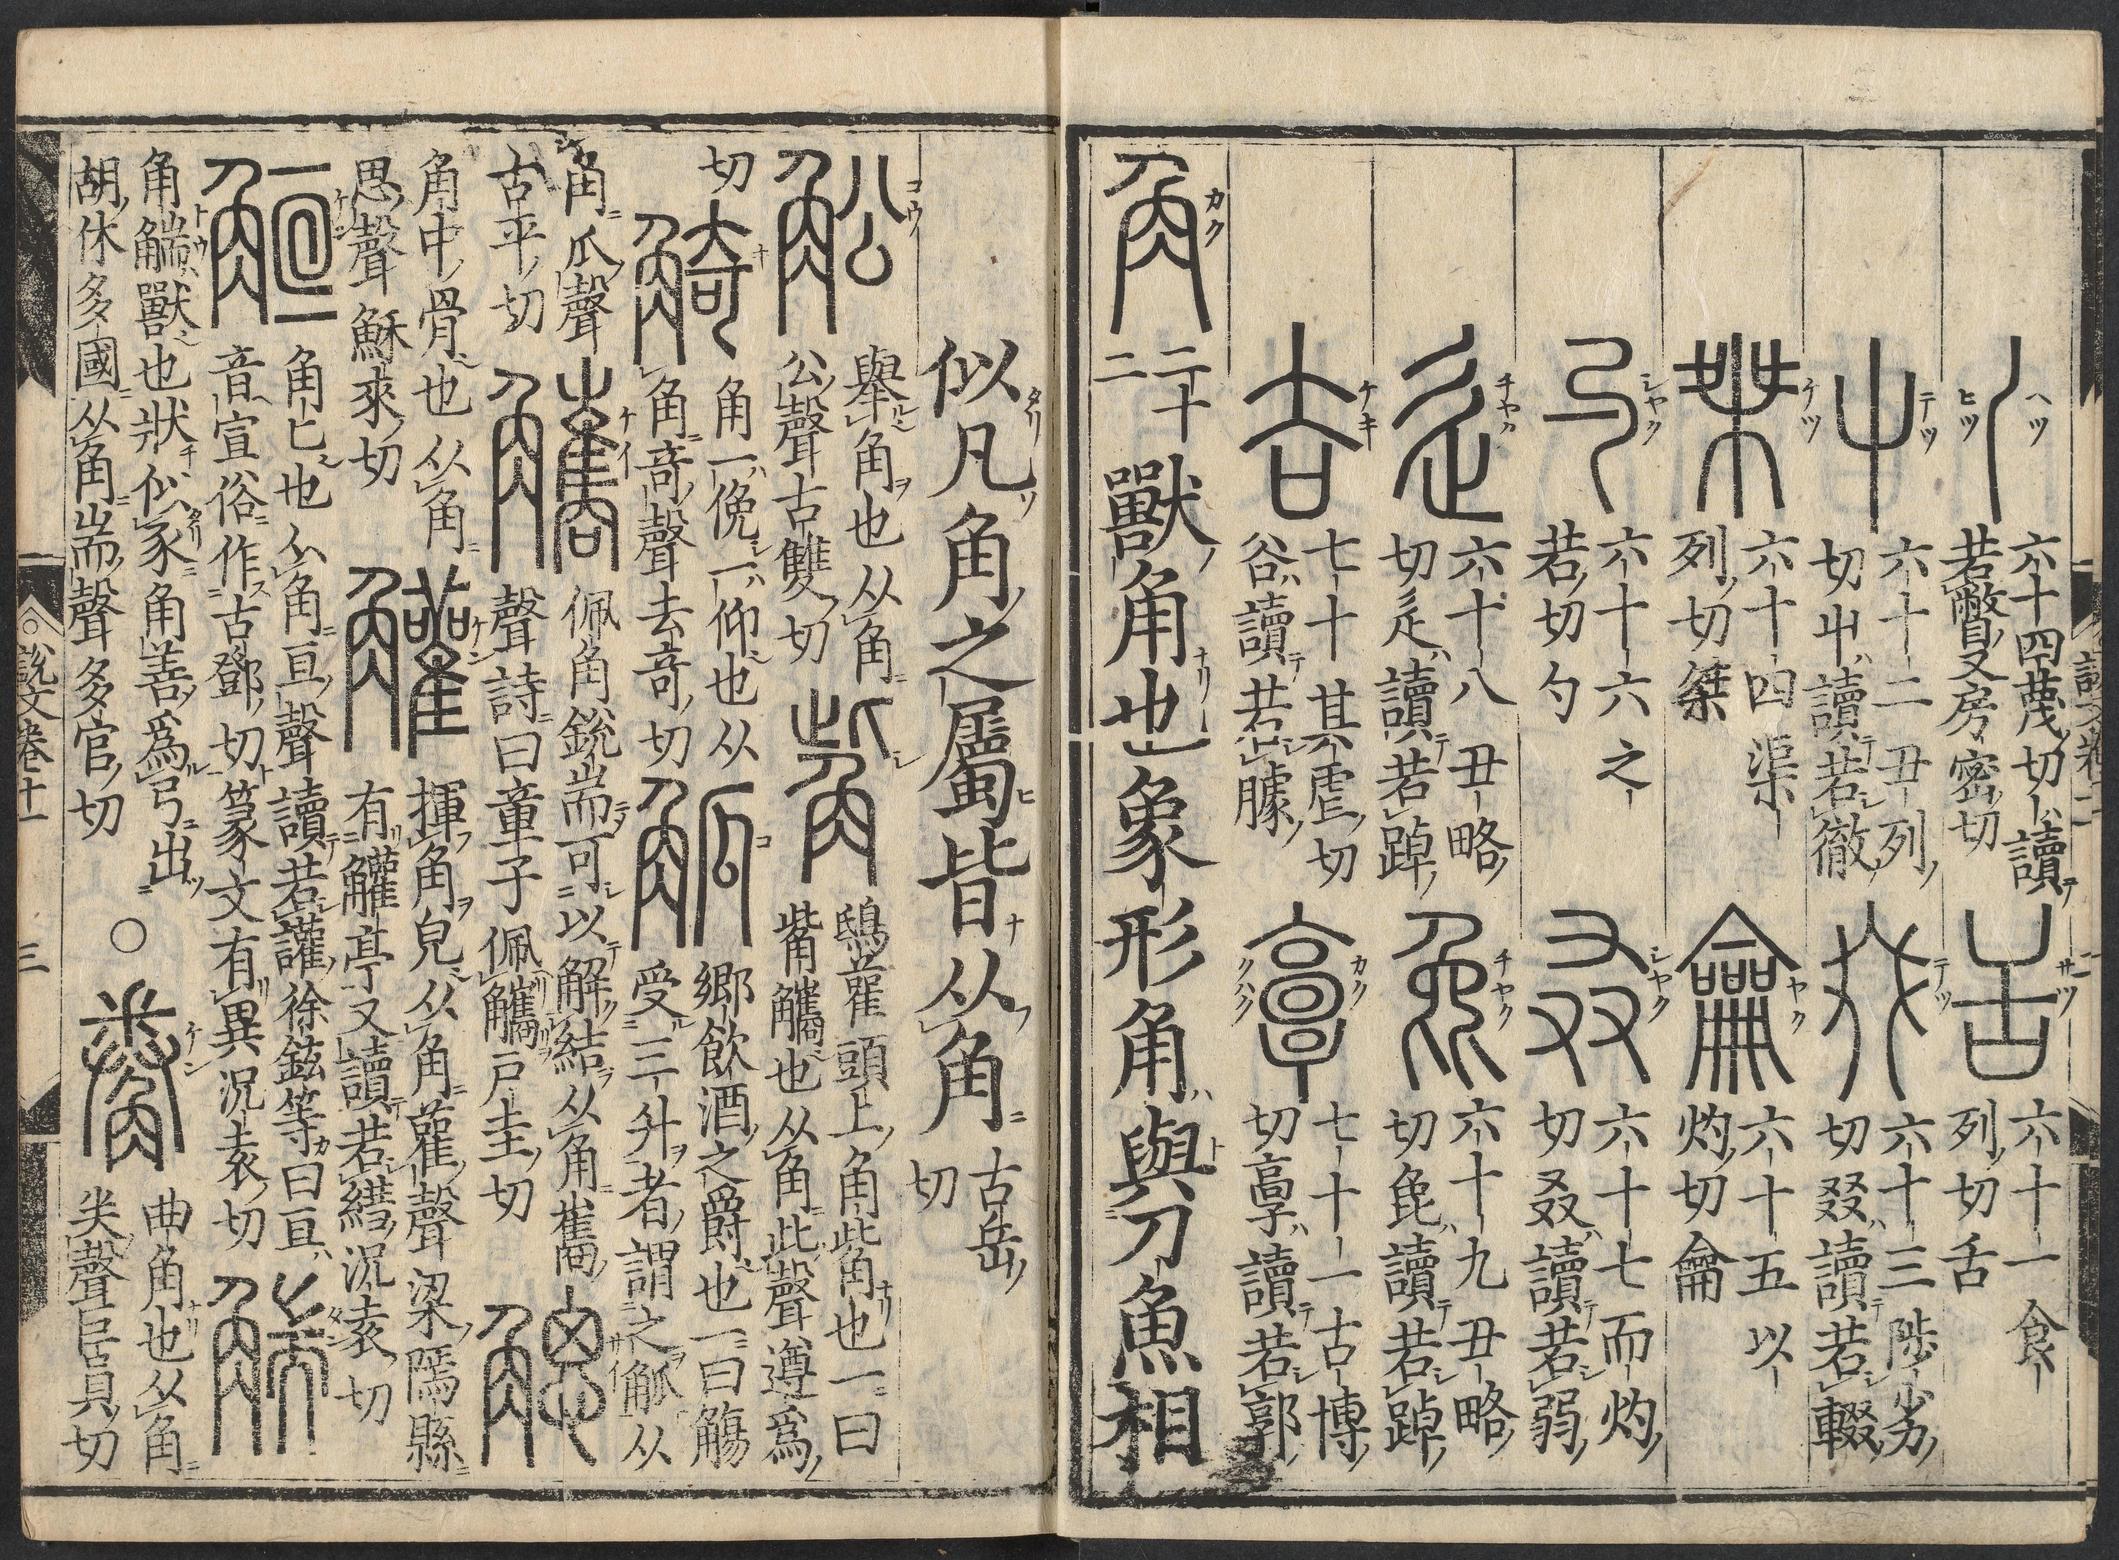 六十四蔑切丿讀
若瞥又房密切
六十一食
列切舌
六十二丑列
切屮讀若徹
六十三陟劣
切叕讀若輟
六十四渠
列切桀
六十五以
灼切龠
六十六之
若切勺
六十七而灼
切叒讀若弱
六十八丑略
切辵讀若踔
六十九丑略
切㲋讀若踔
七十其虐切
谷讀若臄
七十一古博
切𩫏讀若郭
角
二十
二
獸角也象形角與刀魚相
似凡角之屬皆从角
古岳
切
舉角也从角
公聲古雙切
鴟雚頭上角觜也一曰
觜觿也从角此聲遵爲
切
角一俛一仰也从
角奇聲去奇切
鄉飲酒之爵也一曰觴
受三升者謂之觚从
角瓜聲
古乎切
佩角銳耑可以解結从角巂
聲詩曰童子佩觿戶圭切
角中骨也从角
思聲穌來切
揮角皃从角雚聲梁隱縣
有觿亭又讀若繕況袁切
角匕也从角亘聲讀若讙徐鉉等曰亘
音宣俗作古鄧切篆文有異況袁切
角觿獸也狀似豕角善爲弓出
胡休多國从角耑聲多官切
○
曲角也从角
𢍏聲巨員切
說文卷十一
三